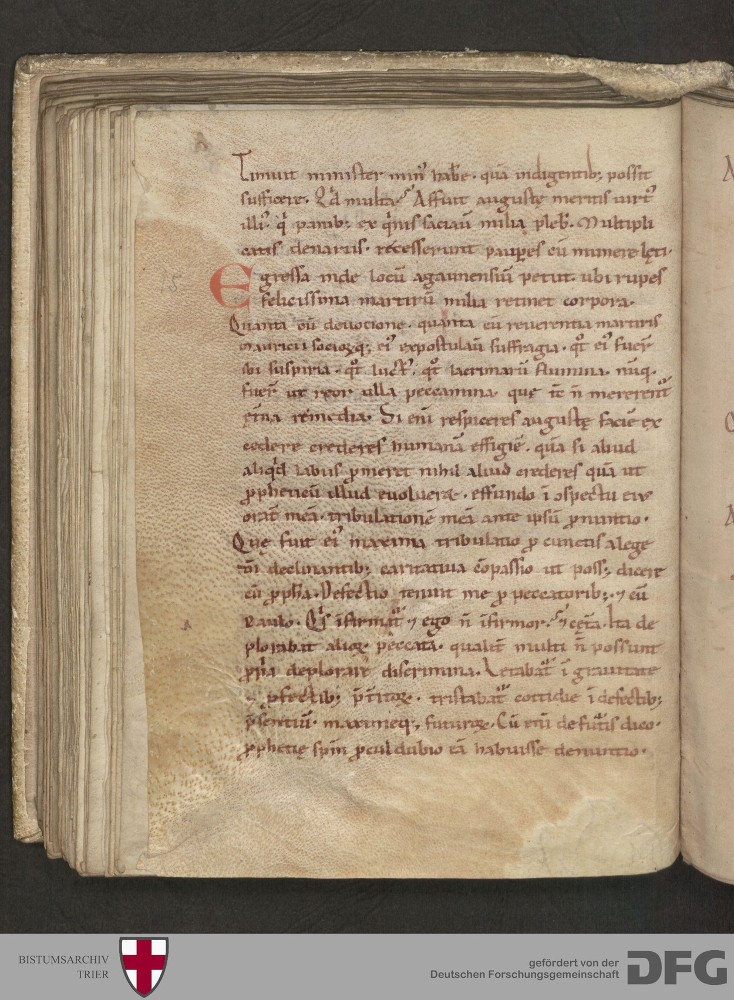 Timuit minister min᷒ habe̅ · qua̅ indigentib; possit
sufficere · Qd multa? Affuit auguste̜ meritis uirt᷒
illi᷒ · q' panib; ex qͥnis saciau̅ milia pleb̅ · Multipli
catis denariis · recesserunt paup̲es cu̅ munere le̜ti ·
Egressa inde locu̅ agaunensiu̅ petiit · ubi rupes
felicissima martiru̅ milia retinet corpora ·
Quanta cu̅ deuotione · quanta cu̅ reuerentia martiris
mauricii socioꝝq; ei᷒ expostulau̅ suffragia · qͦt ei᷒ fuer̅
ibi suspiria · qͦt luct᷒ · qͦt lacrimaru̅ flumina · nu̅q ·
fuer̅ ut reor ulla peccamina · que̜ tc̅ n̅ mererent᷑
et̅na remedia · Si eni̅ respiceres auguste̜ facie̅ ex
cedere crederes humana̅ effigie̅ · qua̅ si aliud
aliqͥd labiis ꝓmeret nihil aliud crederes qua̅ ut
ꝓpheticu̅ illud euolueret · effundo i̅ ↄspectu ei᷒
orat̅ mea̅ · tribulatione̅ mea̅ ante ipsu̅ ꝓnuntio ·
Que̜ fuit ei᷒ maxima tribulatio ꝓ cunctis a lege
dn̅i declinantib; caritatiua co̅passio ut poss; dicere
cu̅ ꝓph̅a · Defectio tenuit me ꝓ peccatorib; · ⁊ cu̅
Paulo · Qͥs i̅firmat᷑ ⁊ ego n̅ i̅firmor? ⁊ cet̅a · Ita de
plorabat alioꝝ peccata · qualit̅ multi n̅ possunt
ꝓp̅a deplorare discrimina · Letabat᷑ i̅ grauitate
p̲fectib; p̅t̅itoꝝ · tristabat᷑ cottidie i̅ defectib;
p̅sentiu̅ · maximeq; futuroꝝ · Cu̅ eni̅ de fut᷑is dico ·
ꝓphetie̜ sp̅m ꝓcul dubio ea̅ habuisse denuntio ·
BISTUMSARCHIV
TRIER
gefördert von der
Deutschen Forschungsgemeinschaft
DFG